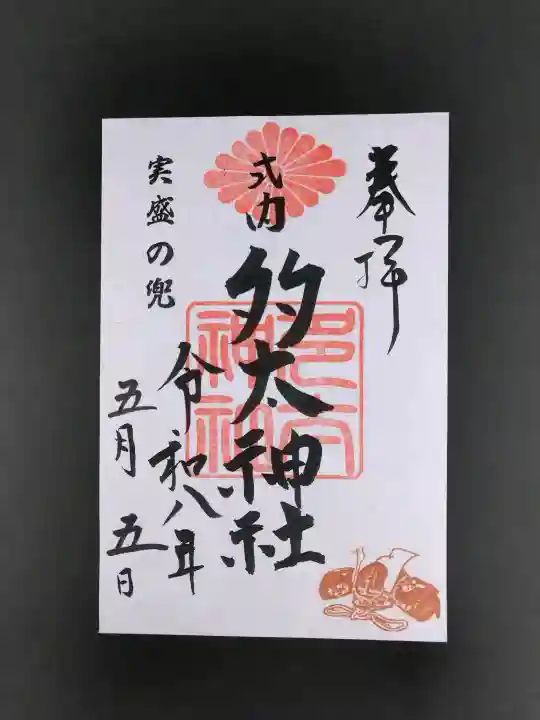 奉拝
式内
多太神社
多太神社
実盛の兜
令和八年
五月五日